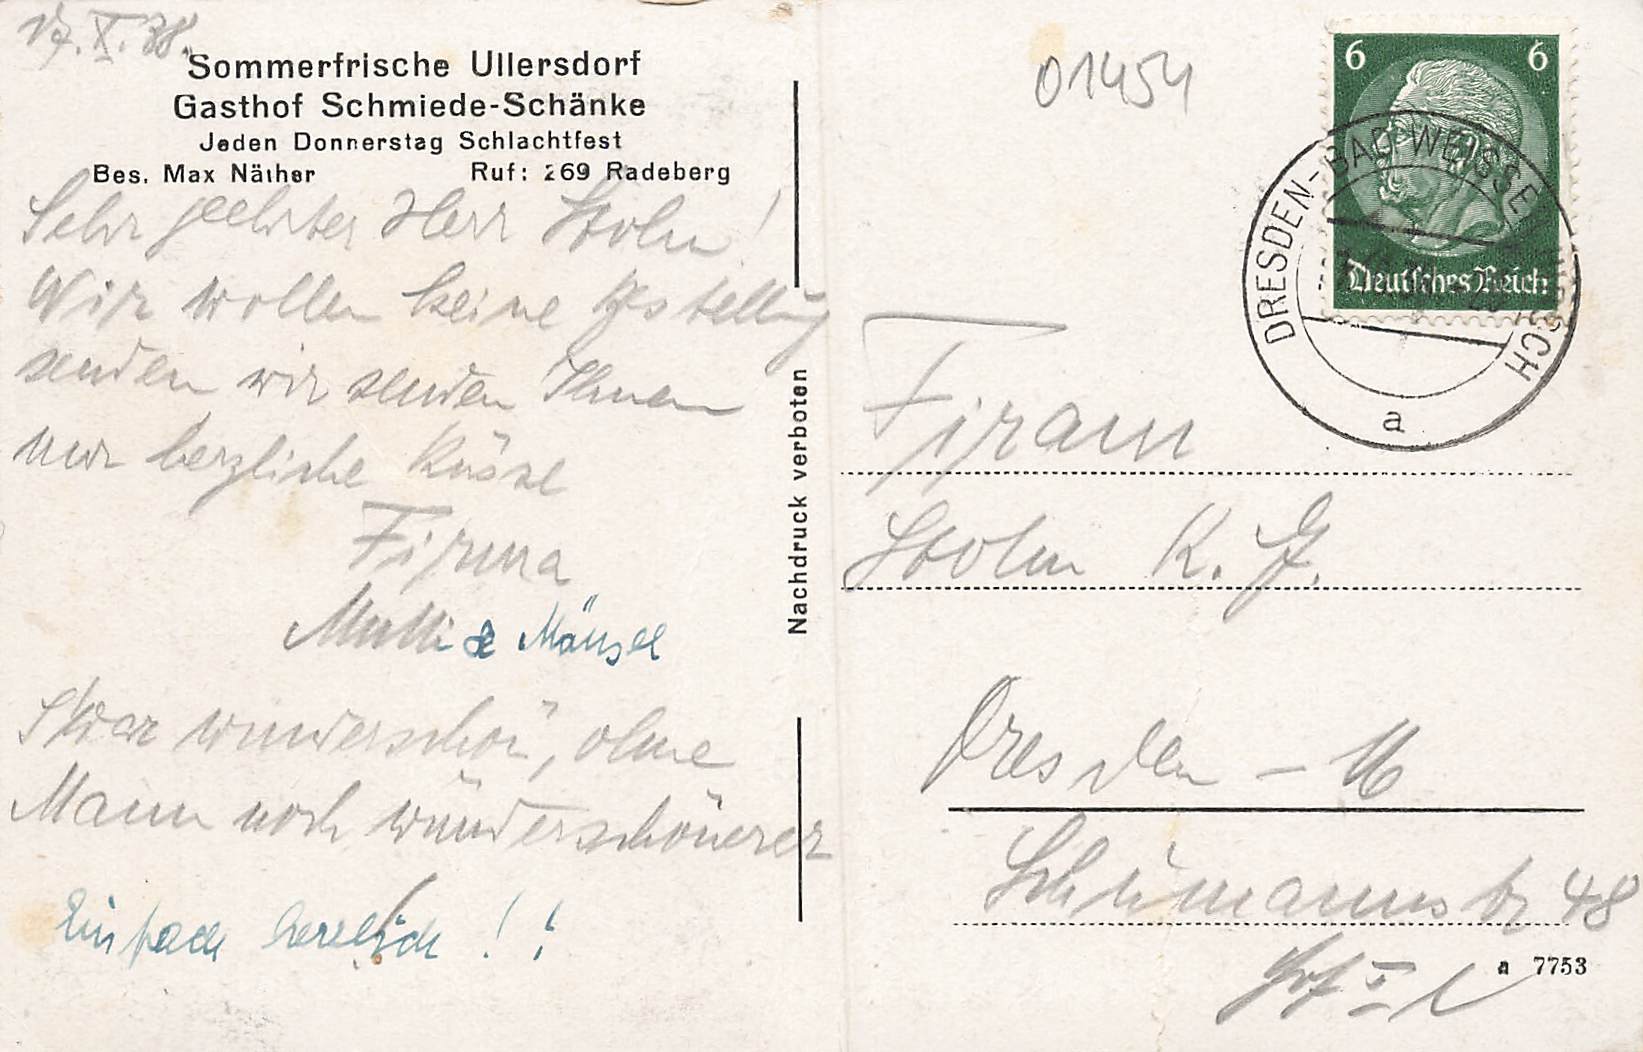 17. X. 38.
Sommerfrische Ullersdorf
Gasthof Schmiede-Schänke
Jeden Donnerstag Schlachtfest
Bes. Max Näther Ruf: 269 Radeberg
Sehr geehrter Herr Stolm!
Wir wollen keine Bestellung
senden wir senden Ihnen
nur herzliche Küsse
Firma
Mutti & Mäusel
S'war wunderschön, ohne
Mann noch wunderschönerer
Einfach herrlich!!
Nachdruck verboten
01454
6 6
Deutsches Reich
DRESDEN-BAD WEISSER HIRSCH
a
Firam
Stolm K. G.
Dresden - A 16
Schumannstr 48
Hof I
a 7753